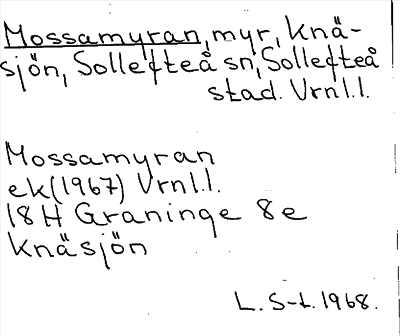 Mossamyran, myr, Knä-
sjön, Sollefteå sn, Sollefteå
stad. Vrnl.l.
Mossamyran
ek (1967) Vrnl.l.
18H Graninge 8e
Knäsjön
L. S-t. 1968.